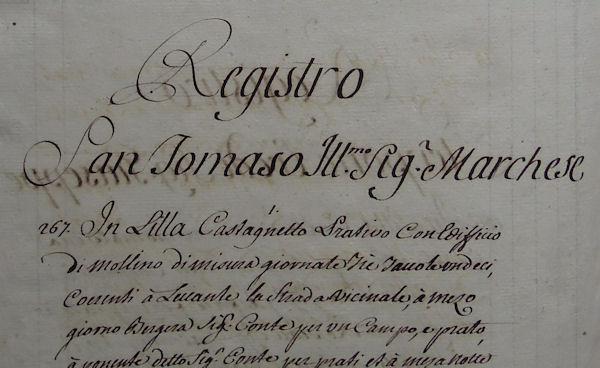 Registro
San Tomaso Ill.mo Sig.r Marchese
267. In Lilla Castagnetto Prativo Con Edifficio
di mollino di misura giornate Trè Tavole undeci,
Coerenti à Levante la Strada Vicinale, à mezo
giorno Bergera Sig.r Conte per un Campo, e prato,
à ponente detto Sig.r Conte per prati et à meza notte